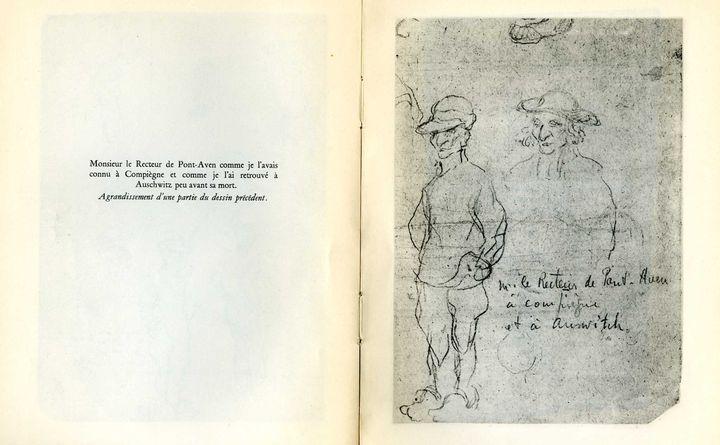 Monsieur le Recteur de Pont-Aven comme je l'avais
connu à Compiègne et comme je l'ai retrouvé à
Auschwitz peu avant sa mort.
Agrandissement d'une partie du dessin précédent.
M. le Recteur de Pont-Aven
à compiègne
et à Auswitch.